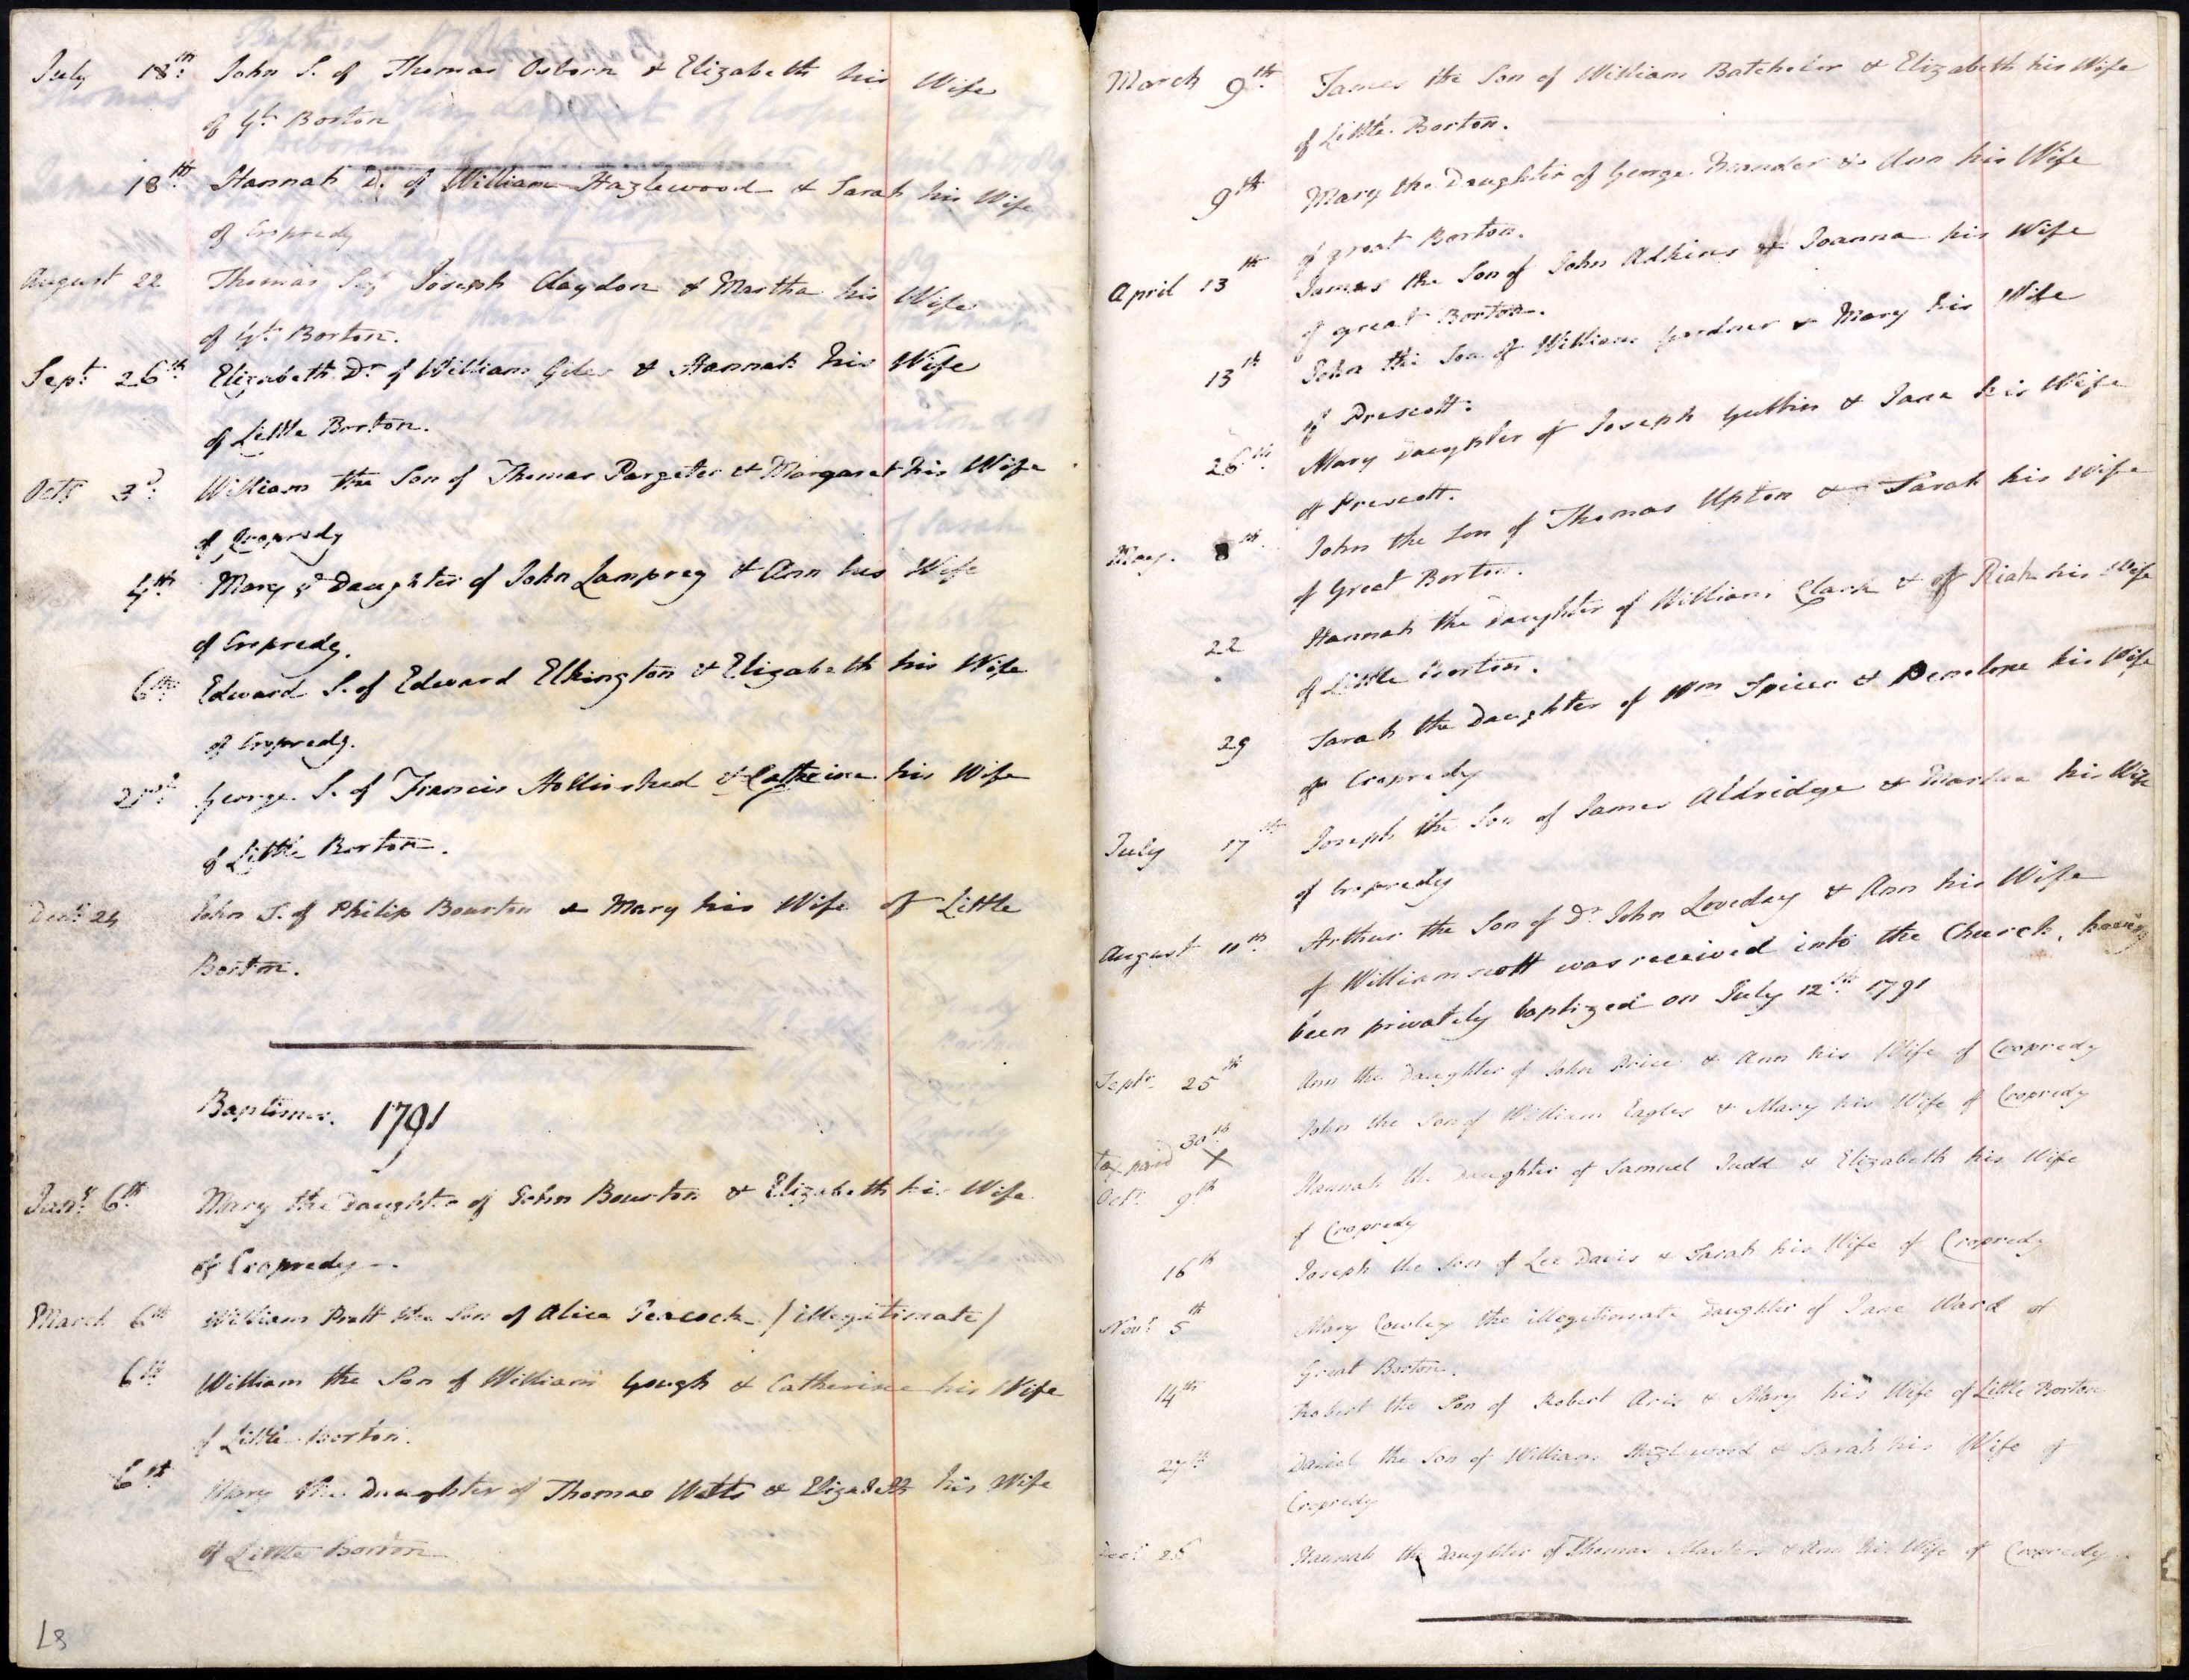 July 18th John S. of Thomas Osborn & Elizabeth his Wife
of Gt. Borton
18th Hannah D. of William Hazlewood & Sarah his Wife
of Cropredy
August 22 Thomas S. of Joseph Claydon & Martha his Wife
of Gt. Borton.
Sept. 26th Elizabeth Dr. of William Giles & Hannah his Wife
of Little Borton.
Octr. 3d. William the Son of Thomas Pargeter & Margaret his Wife
of Cropredy
4th Mary ye Daughter of John Lamprey & Ann his Wife
of Cropredy.
6th Edward S. of Edward Elkington & Elizabeth his Wife
of Cropredy.
George S. of Francis Hollinshed & Catherine his Wife
of Little Borton.
Decr. 24 John S. of Philip Bourton & Mary his Wife of Little
Borton.
Baptisms. 1791
Jany. 6th Mary the Daughter of John Bourton & Elizabeth his Wife
of Cropredy.
March 6th William Pratt the Son of Alice Peacock /illegitimate/
6th William the Son of William Gough & Catherine his Wife
of Little Borton.
6th Mary the Daughter of Thomas Watts & Elizabeth his Wife
of Little Borton
March 9th James the Son of William Batchelor & Elizabeth his Wife
of Little Borton.
9th Mary the Daughter of George & Ann his Wife
of great Borton.
April 13th James the Son of John Adkins & Joanna his Wife
of great Borton.
13th John the Son of William Gardner & Mary his Wife
of Prescott.
26th Mary Daughter of Joseph & Jane his Wife
of Prescott.
May 8th John the Son of Thomas Upton & Sarah his Wife
of Great Borton.
22 Hannah the Daughter of William Clark & of Riah his Wife
of Little Borton.
29 Sarah the Daughter of Wm Spicer & Penelope his Wife
of Cropredy
July 17th Joseph the Son of James Aldridge & Martha his Wife
of Cropredy
August 11th Arthur the Son of Dr. John Loveday & Ann his Wife
of Williamscott was received into the Church, having
been privately baptized on July 12th 1791
Septr. 25th Ann the Daughter of John Price & Ann his Wife of Cropredy
30th John the Son of William Eagles & Mary his Wife of Cropredy
Tax paid X
Octr. 9th Hannah the Daughter of Samuel Judd & Elizabeth his Wife
of Cropredy
16th Joseph the Son of Lee Davis & Sarah his Wife of Cropredy
Novr. 5th Mary Cowley the illegitimate Daughter of Jane Ward of
Great Borton.
14th Robert the Son of Robert Aris & Mary his Wife of Little Borton
27th Daniel the Son of William Hazlewood & Sarah his Wife of
Cropredy
Decr. 26 Hannah the Daughter of Thomas Masters & Ann his Wife of Cropredy